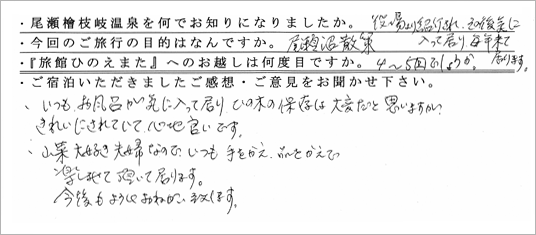 ・尾瀬檜枝岐温泉を何でお知りになりましたか。 役場より紹介され、その後気に
・今回のご旅行の目的はなんですか。 尾瀬沼散策 入って居り毎年来て
・『旅館ひのえまた』へのお越しは何度目ですか。 4～5回でしょうか。 居ります。
・ご宿泊いただきましたご感想・ご意見をお聞かせ下さい。
、いつもお風呂が気に入って居り ひの木の保存は大変だと思いますが
きれいにされていて、心地良いです。
、山菜大好き夫婦なので、いつも手をかえ、品をかえて
楽しませて頂いて居ります。
今後もよろしくおねがい致します。